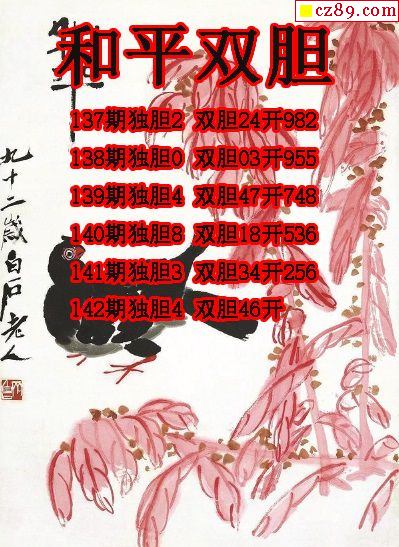 cz89.com
和平双胆
137期独胆2 双胆24开982
138期独胆0 双胆03开955
139期独胆4 双胆47开748
140期独胆8 双胆18开536
141期独胆3 双胆34开256
142期独胆4 双胆46开
九十二岁白石老人